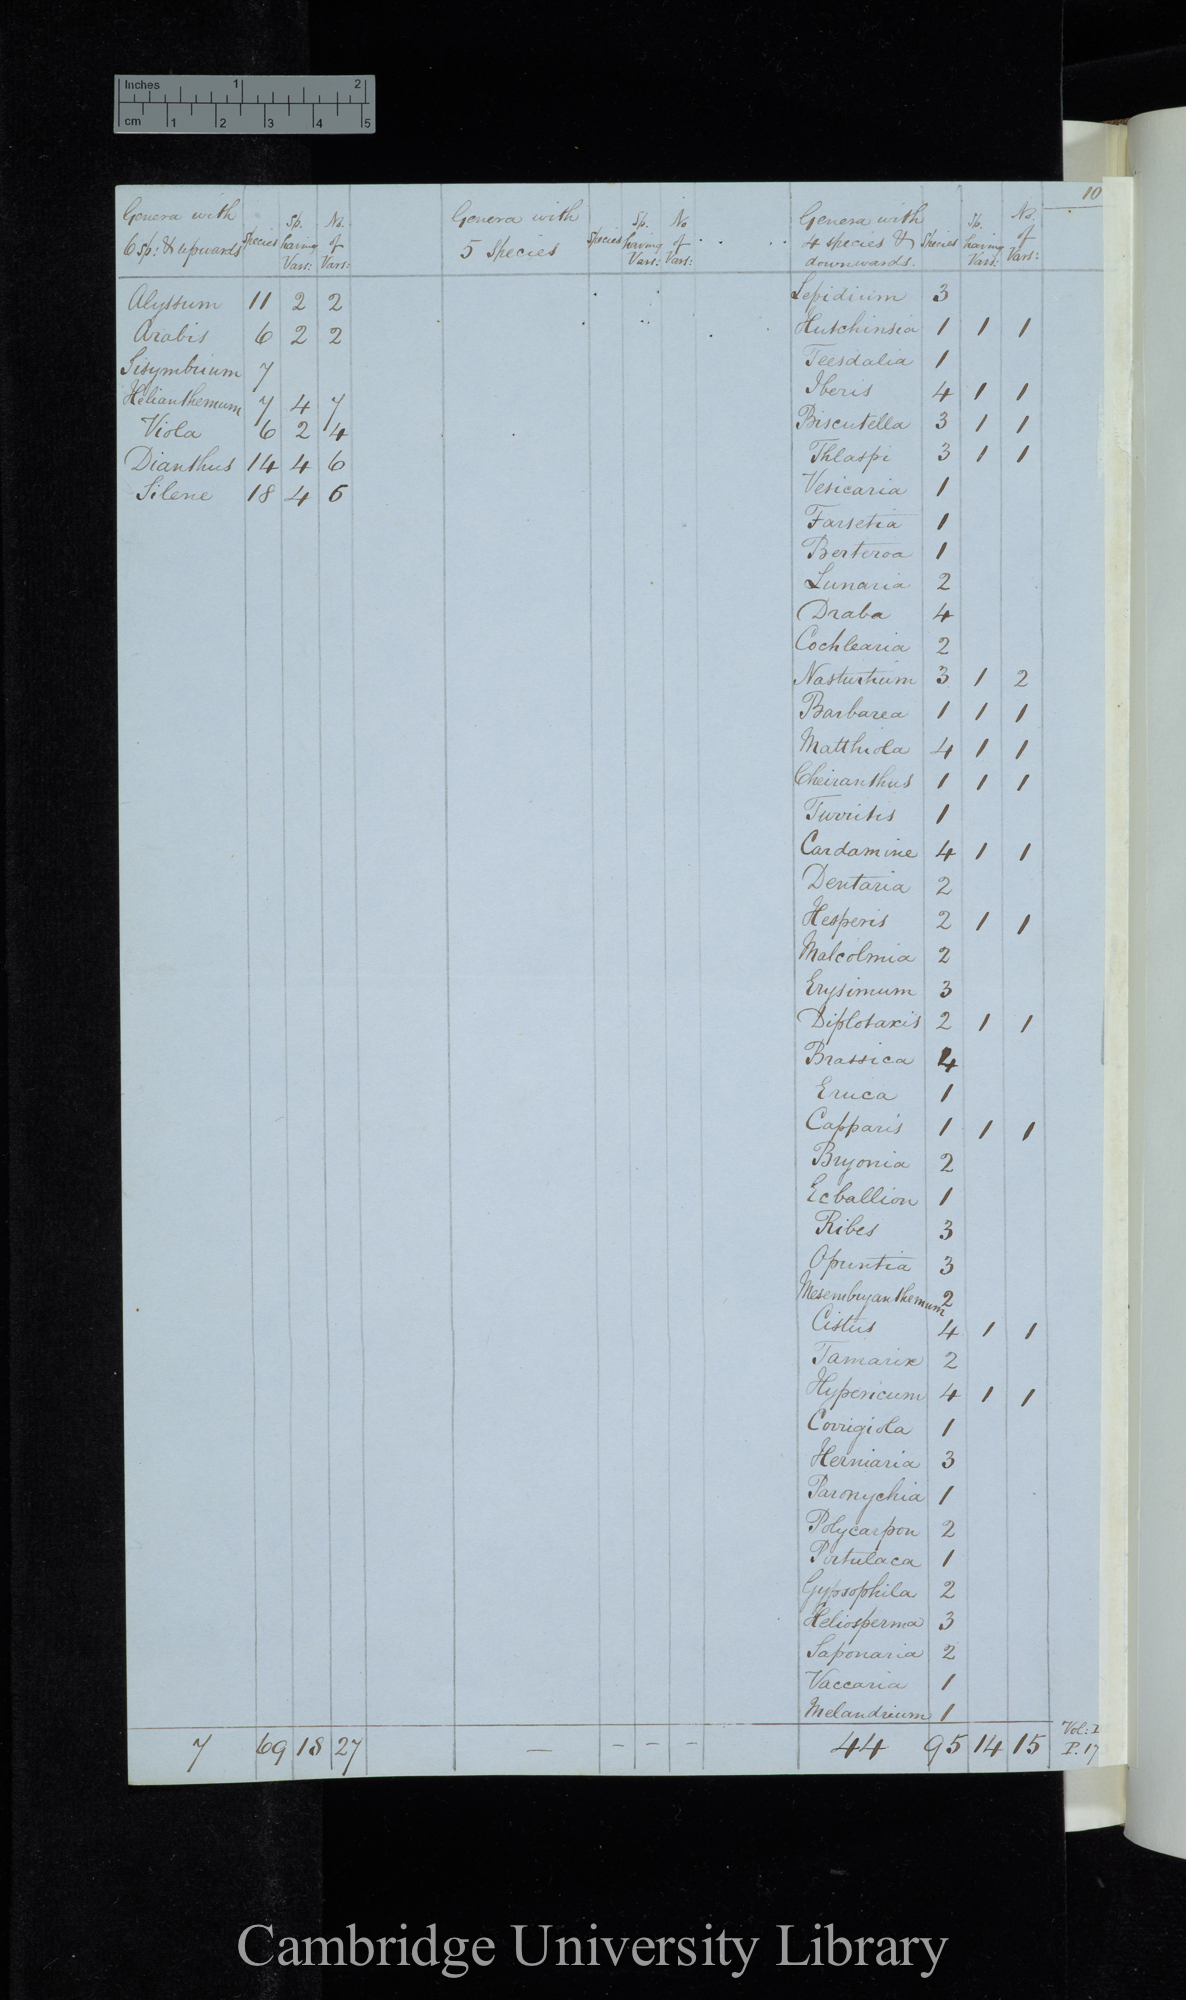 Inches 1 2
cm 1 2 3 4 5
10
Genera with
6 sp: & upwards
Species
Sp. having Vars:
No. of Vars:
Genera with
5 Species
Species
Sp. having Vars:
No of Vars:
Genera with
4 species &
downwards.
Species
Sp. having Vars:
No. of Vars:
Alyssum 11 2 2
Arabis 6 2 2
Sisymbrium 7
Helianthemum 7 4 7
Viola 6 2 4
Dianthus 14 4 6
Silene 18 4 6
Lepidium 3
Hutchinsia 1 1 1
Teesdalia 1
Iberis 4 1 1
Biscutella 3 1 1
Thlaspi 3 1 1
Vesicaria 1
Farsetia 1
Berteroa 1
Lunaria 2
Draba 4
Cochlearia 2
Nasturtium 3 1 2
Barbarea 1 1 1
Matthiola 4 1 1
Cheiranthus 1 1 1
Turritis 1
Cardamine 4 1 1
Dentaria 2
Hesperis 2 1 1
Malcolmia 2
Erysimum 3
Diplotaxis 2 1 1
Brassica 4
Eruca 1
Capparis 1 1 1
Bryonia 2
Ecballion 1
Ribes 3
Opuntia 3
Mesembryanthemum 2
Cistus 4 1 1
Tamarix 2
Hypericum 4 1 1
Corrigiola 1
Herniaria 3
Paronychia 1
Polycarpon 2
Portulaca 1
Gypsophila 2
Heliosperma 3
Saponaria 2
Vaccaria 1
Melandrium 1
7 69 18 27 — – – – 44 95 14 15
Vol: I
P. 17
Cambridge University Library